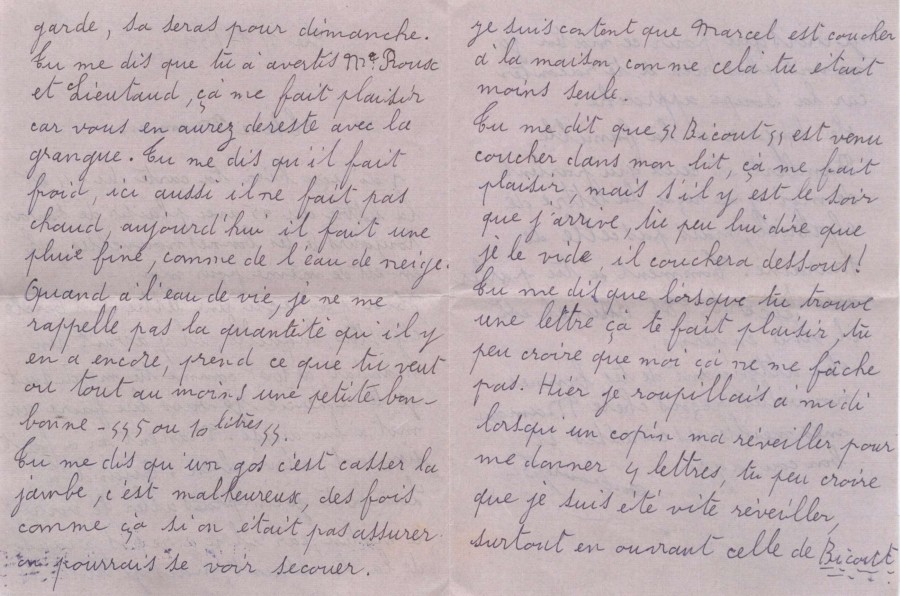 garde, sa seras pour dimanche.
Tu me dis que tu à avertis Mr Roux
et Lieutaud, çà me fait plaisir
car vous en aurez dereste avec la
grangue. Tu me dis qu'il fait
froid, ici aussi il ne fait pas
chaud, aujourd'hui il fait une
pluie fine, comme de l'eau de neige.
Quand à l'eau de vie, je ne me
rappelle pas la quantité qu'il y
en a encore, prend ce que tu veut
ou tout au moins une petite bon-
bonne - "5 ou 10 litres".
Tu me dis qu'un gos c'est casser la
jambe, c'est malheureux, des fois
comme ça si on était pas assurer
on pourrais se voir secouer.
je suis content que Marcel est coucher
à la maison, comme celà tu était
moins seule.
Tu me dit que "Bicout" est venu
coucher dans mon lit, çà me fait
plaisir, mais s'il y est le soir
que j'arrive, tu peu lui dire que
je le vide il couchera dessous!
Tu me dis que lorsque tu trouve
une lettre çà te fait plaisir, tu
peu croire que moi çà ne me fâche
pas. Hier je roupillais à midi
lorsqu'un copin ma réveiller pour
me donner 4 lettres, tu peu croire
que je suis été vite réveiller,
surtout en ouvrant celle de Bicout